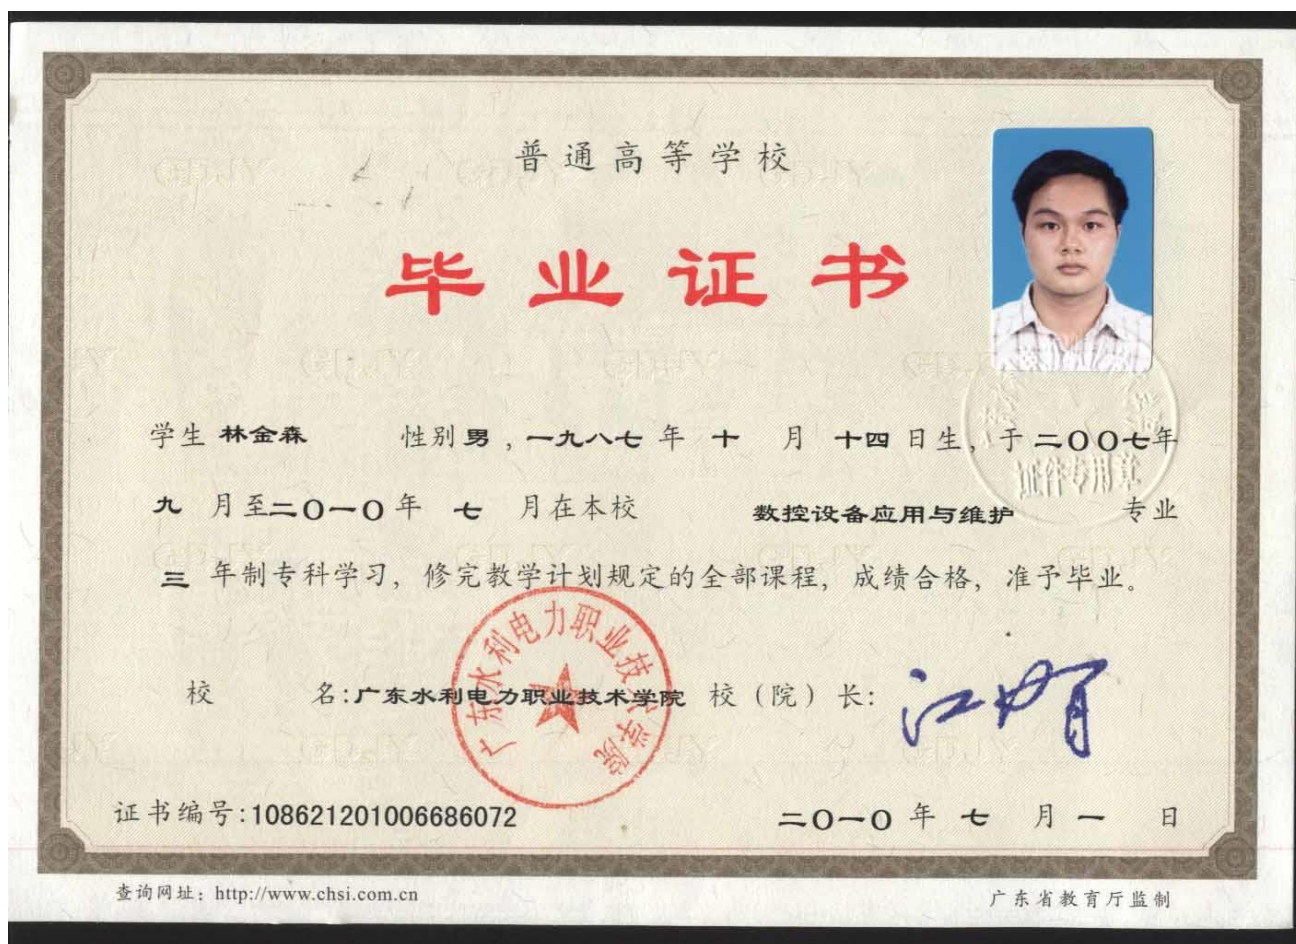 普通高等学校
毕业证书
学生 林金森 性别 男 , 一九八七 年 十 月 十四 日生, 于 二〇〇七 年
九 月至 二〇一〇 年 七 月在本校 数控设备应用与维护 专业
三 年制专科学习, 修完教学计划规定的全部课程, 成绩合格, 准予毕业。
校 名: 广东水利电力职业技术学院 校（院）长:
广东水利电力职业技术学院
证件专用章
证书编号: 108621201006686072 二〇一〇 年 七 月 一 日
查询网址: http://www.chsi.com.cn 广东省教育厅监制